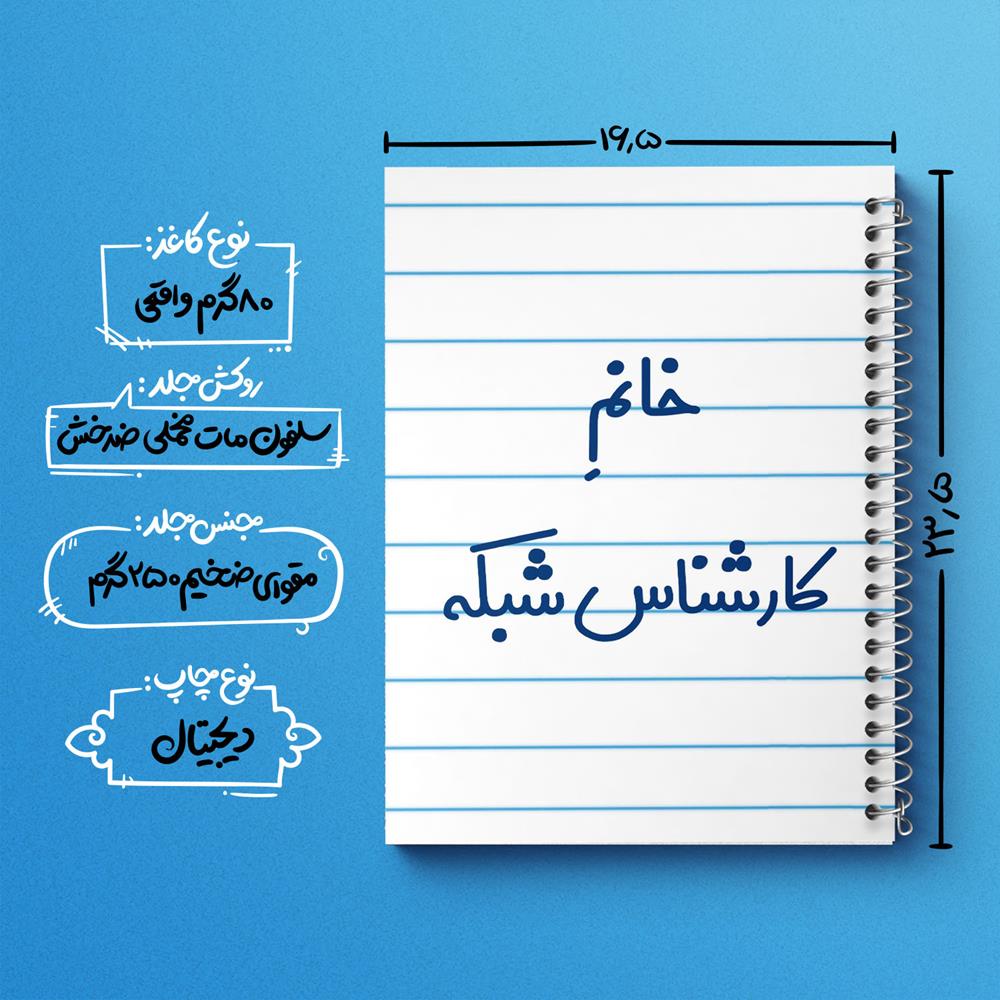 ۱۶٫۵
۲۳٫۵
خانمِ
کارشناس شبکه
نوع کاغذ:
۸۰ گرم واقعی
روکش جلد:
سلفون مات مخملی ضدخش
جنس جلد:
مقوای ضخیم ۲۵۰ گرم
نوع چاپ:
دیجیتال